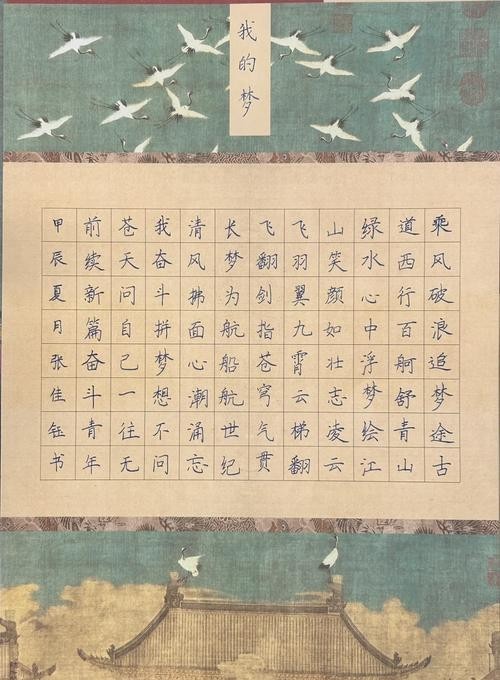 我的梦
乘风破浪追梦途古
道西行百舸舒青山
绿水心中浮梦绘江
山笑颜如壮志凌云
飞羽翼九霄云梯翻
飞翻剑指苍穹气贯
长梦为航船航世纪
清风拂面心潮涌忘
我奋斗拼梦想不问
苍天问自己一往无
前续新篇奋斗青年
甲辰夏月张佳钰书